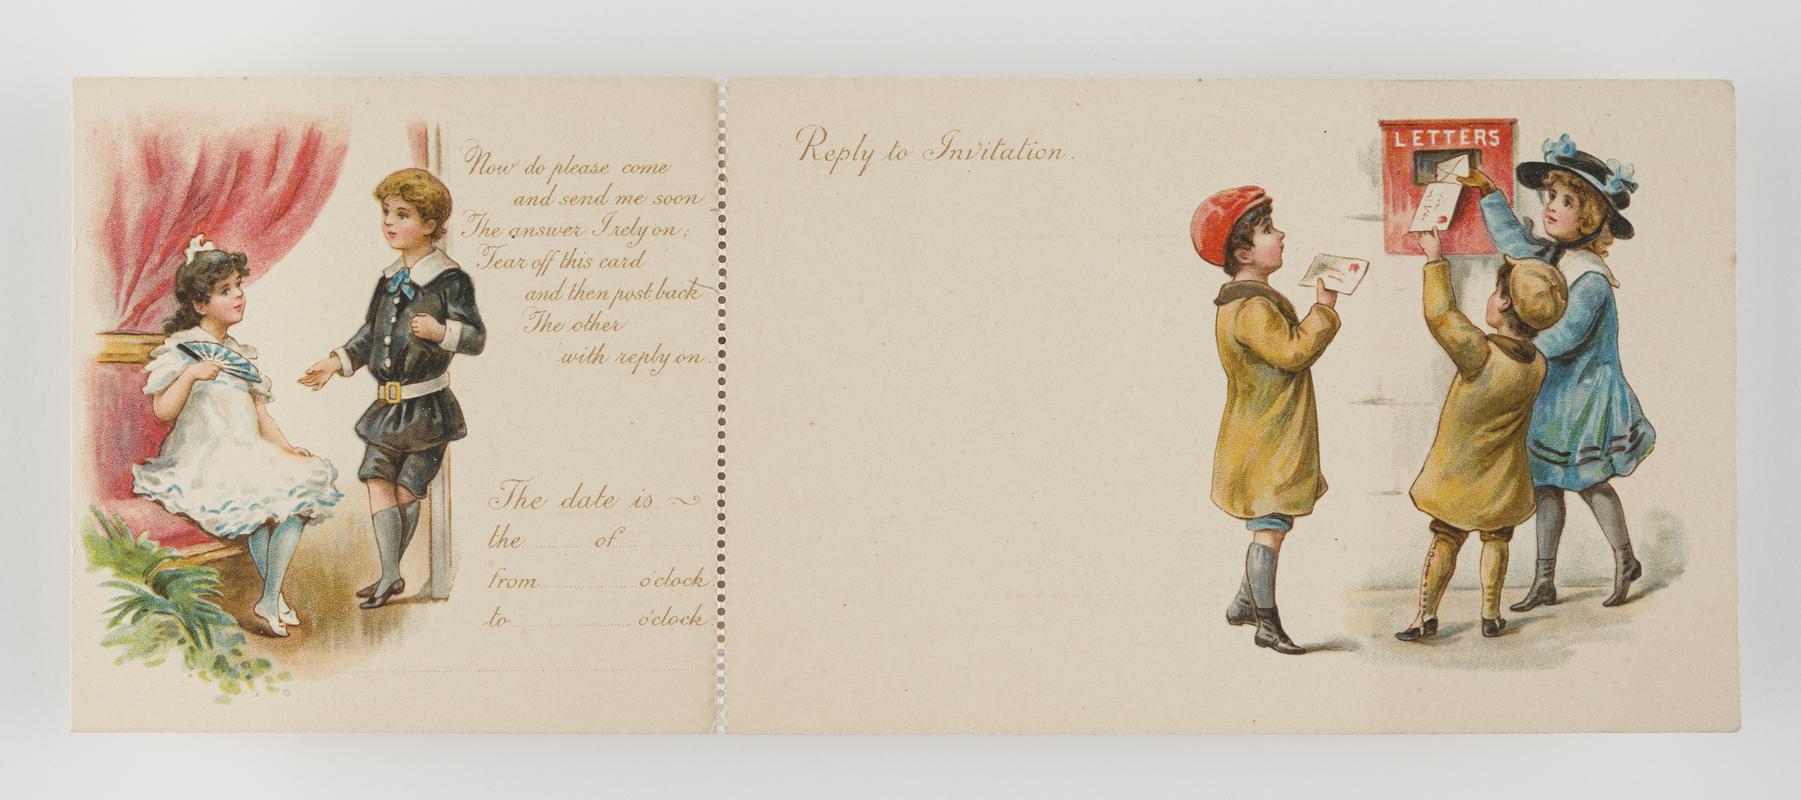 Now do please come
and send me soon
The answer I rely on;
Tear off this card
and then post back
The other
with reply on.
The date is ~
the of
from o'clock
to o'clock.
Reply to Invitation.
LETTERS